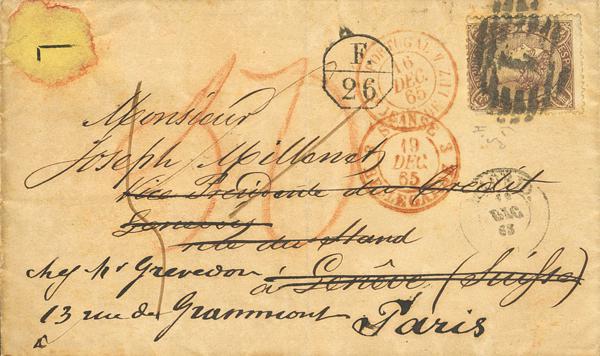 F
26
16
DEC.
65
SEANSE 3
19
DEC.
65
DEC
65
Monsieur
Joseph Millenet
Vice Président du Crédit
Genevois
rue du Stand
chez Mr Grevedon à Genève (Suisse)
13 rue de Grammont Paris